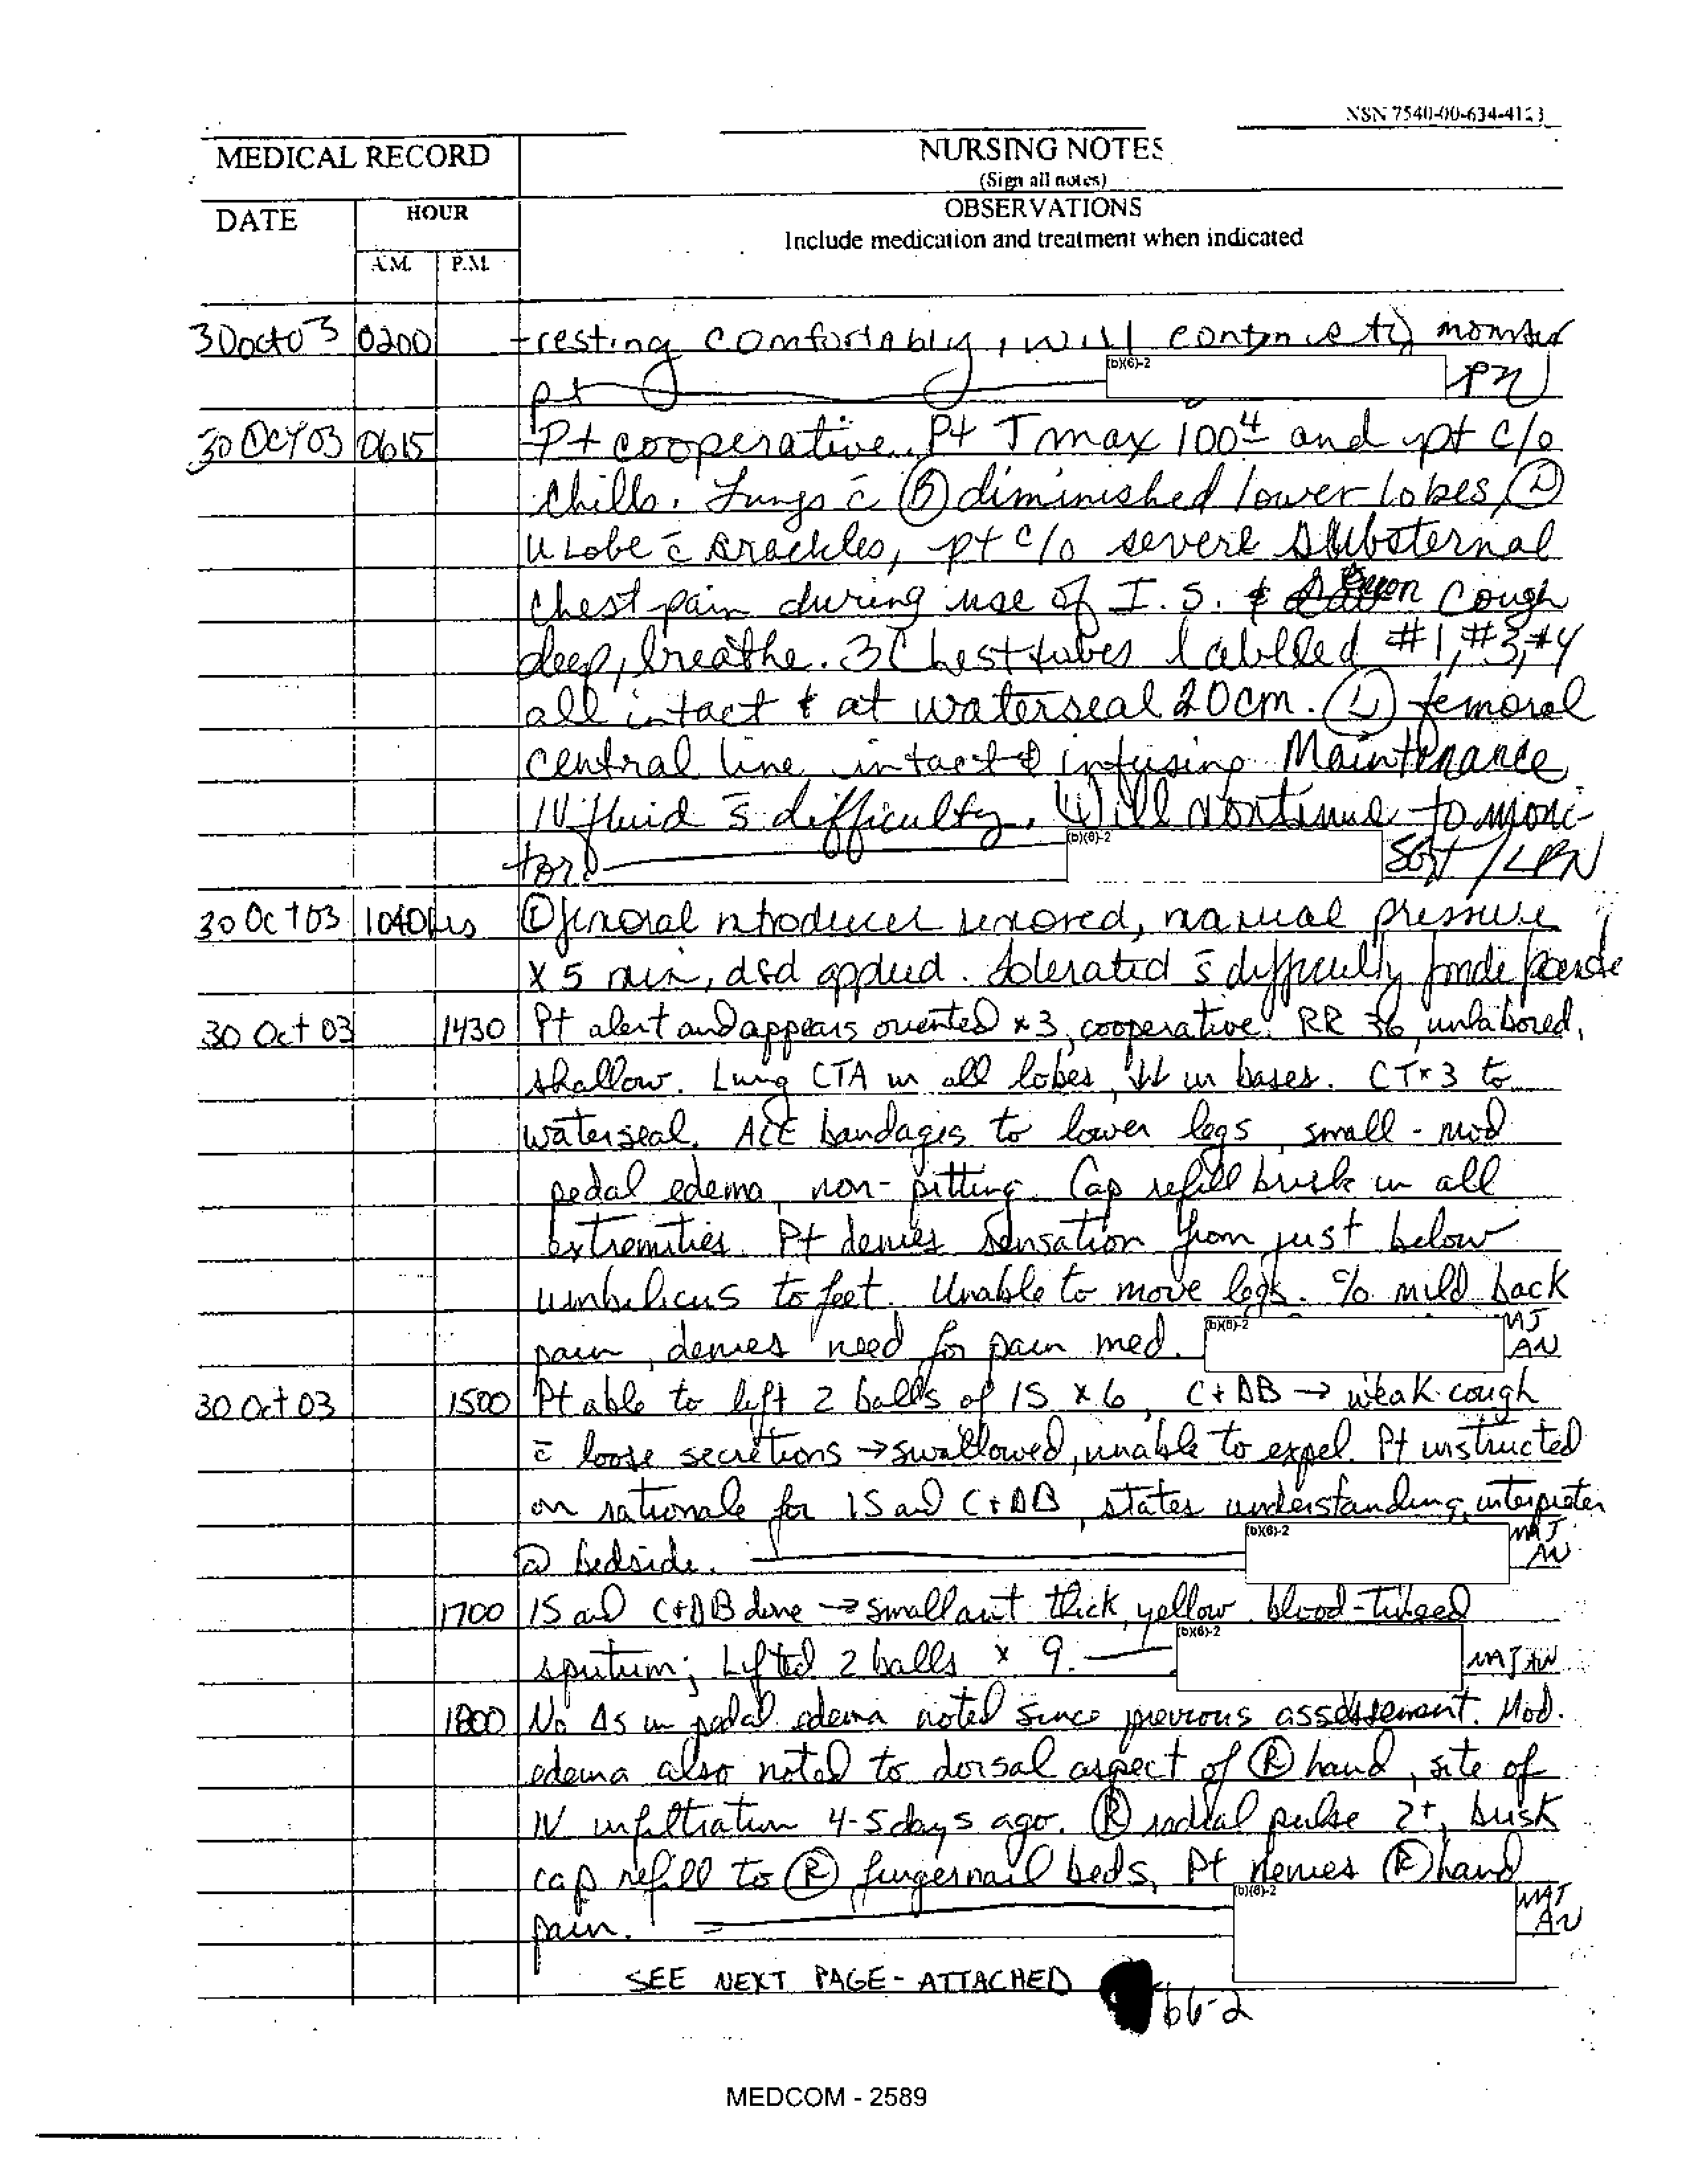 NSN 7540-00-634-4123
MEDICAL RECORD
NURSING NOTES
(Sign all notes)
DATE
HOUR
OBSERVATIONS
Include medication and treatment when indicated
A.M. P.M.
30 Oct 03 0200 resting comfortably, will continue to monitor
pt (b)(6)-2
30 Oct 03 0615 Pt cooperative. Pt T max 100 4 and pt c/o
chills. Lungs c̄ Ⓑ diminished lower lobes, Ⓛ
u lobe c̄ crackles, pt c/o severe substernal
chest pain during use of I.S. & cough
deep, breathe. 3 Chest tubes labelled #1, #3, #4
all intact & at waterseal 20cm. Ⓛ femoral
central line intact & infusing Maintenance
IV fluid s̄ difficulty. Will continue to moni-
tor. (b)(6)-2 SGT/LPN
30 Oct 03 1040hrs Ⓛ femoral introducer removed, manual pressure
x 5 min, dsd applied. tolerated s̄ difficulty
30 Oct 03 1430 Pt alert and appears oriented x3, cooperative. RR 36, unlabored,
shallow. Lung CTA in all lobes, ↓↓ in bases. CT x 3 to
waterseal. ACE bandages to lower legs, small - mod
pedal edema, non-pitting. Cap refill brisk in all
extremities. Pt denies sensation from just below
umbilicus to feet. Unable to move legs. c/o mild back
pain, denies need for pain med. (b)(6)-2 MJ
AN
30 Oct 03 1500 Pt able to lift 2 balls of IS x 6, C+DB → weak cough
c̄ loose secretions → swallowed, unable to expel. Pt instructed
on rationale for IS and C+DB, states understanding, interpreter
@ bedside. (b)(6)-2 MAJ
AN
1700 IS and C+DB done → small amt thick, yellow blood-tinged
sputum; Lifted 2 balls x 9. (b)(6)-2 MAJ AN
1800 No Δs in pedal edema noted since previous assessment. Mod.
edema also noted to dorsal aspect of Ⓡ hand, site of
IV infiltration 4-5 days ago. Ⓡ radial pulse 2+, brisk
cap refill to Ⓡ fingernail beds, Pt denies Ⓡ hand
pain. (b)(6)-2 MAJ
AN
SEE NEXT PAGE - ATTACHED
b6-2
MEDCOM - 2589